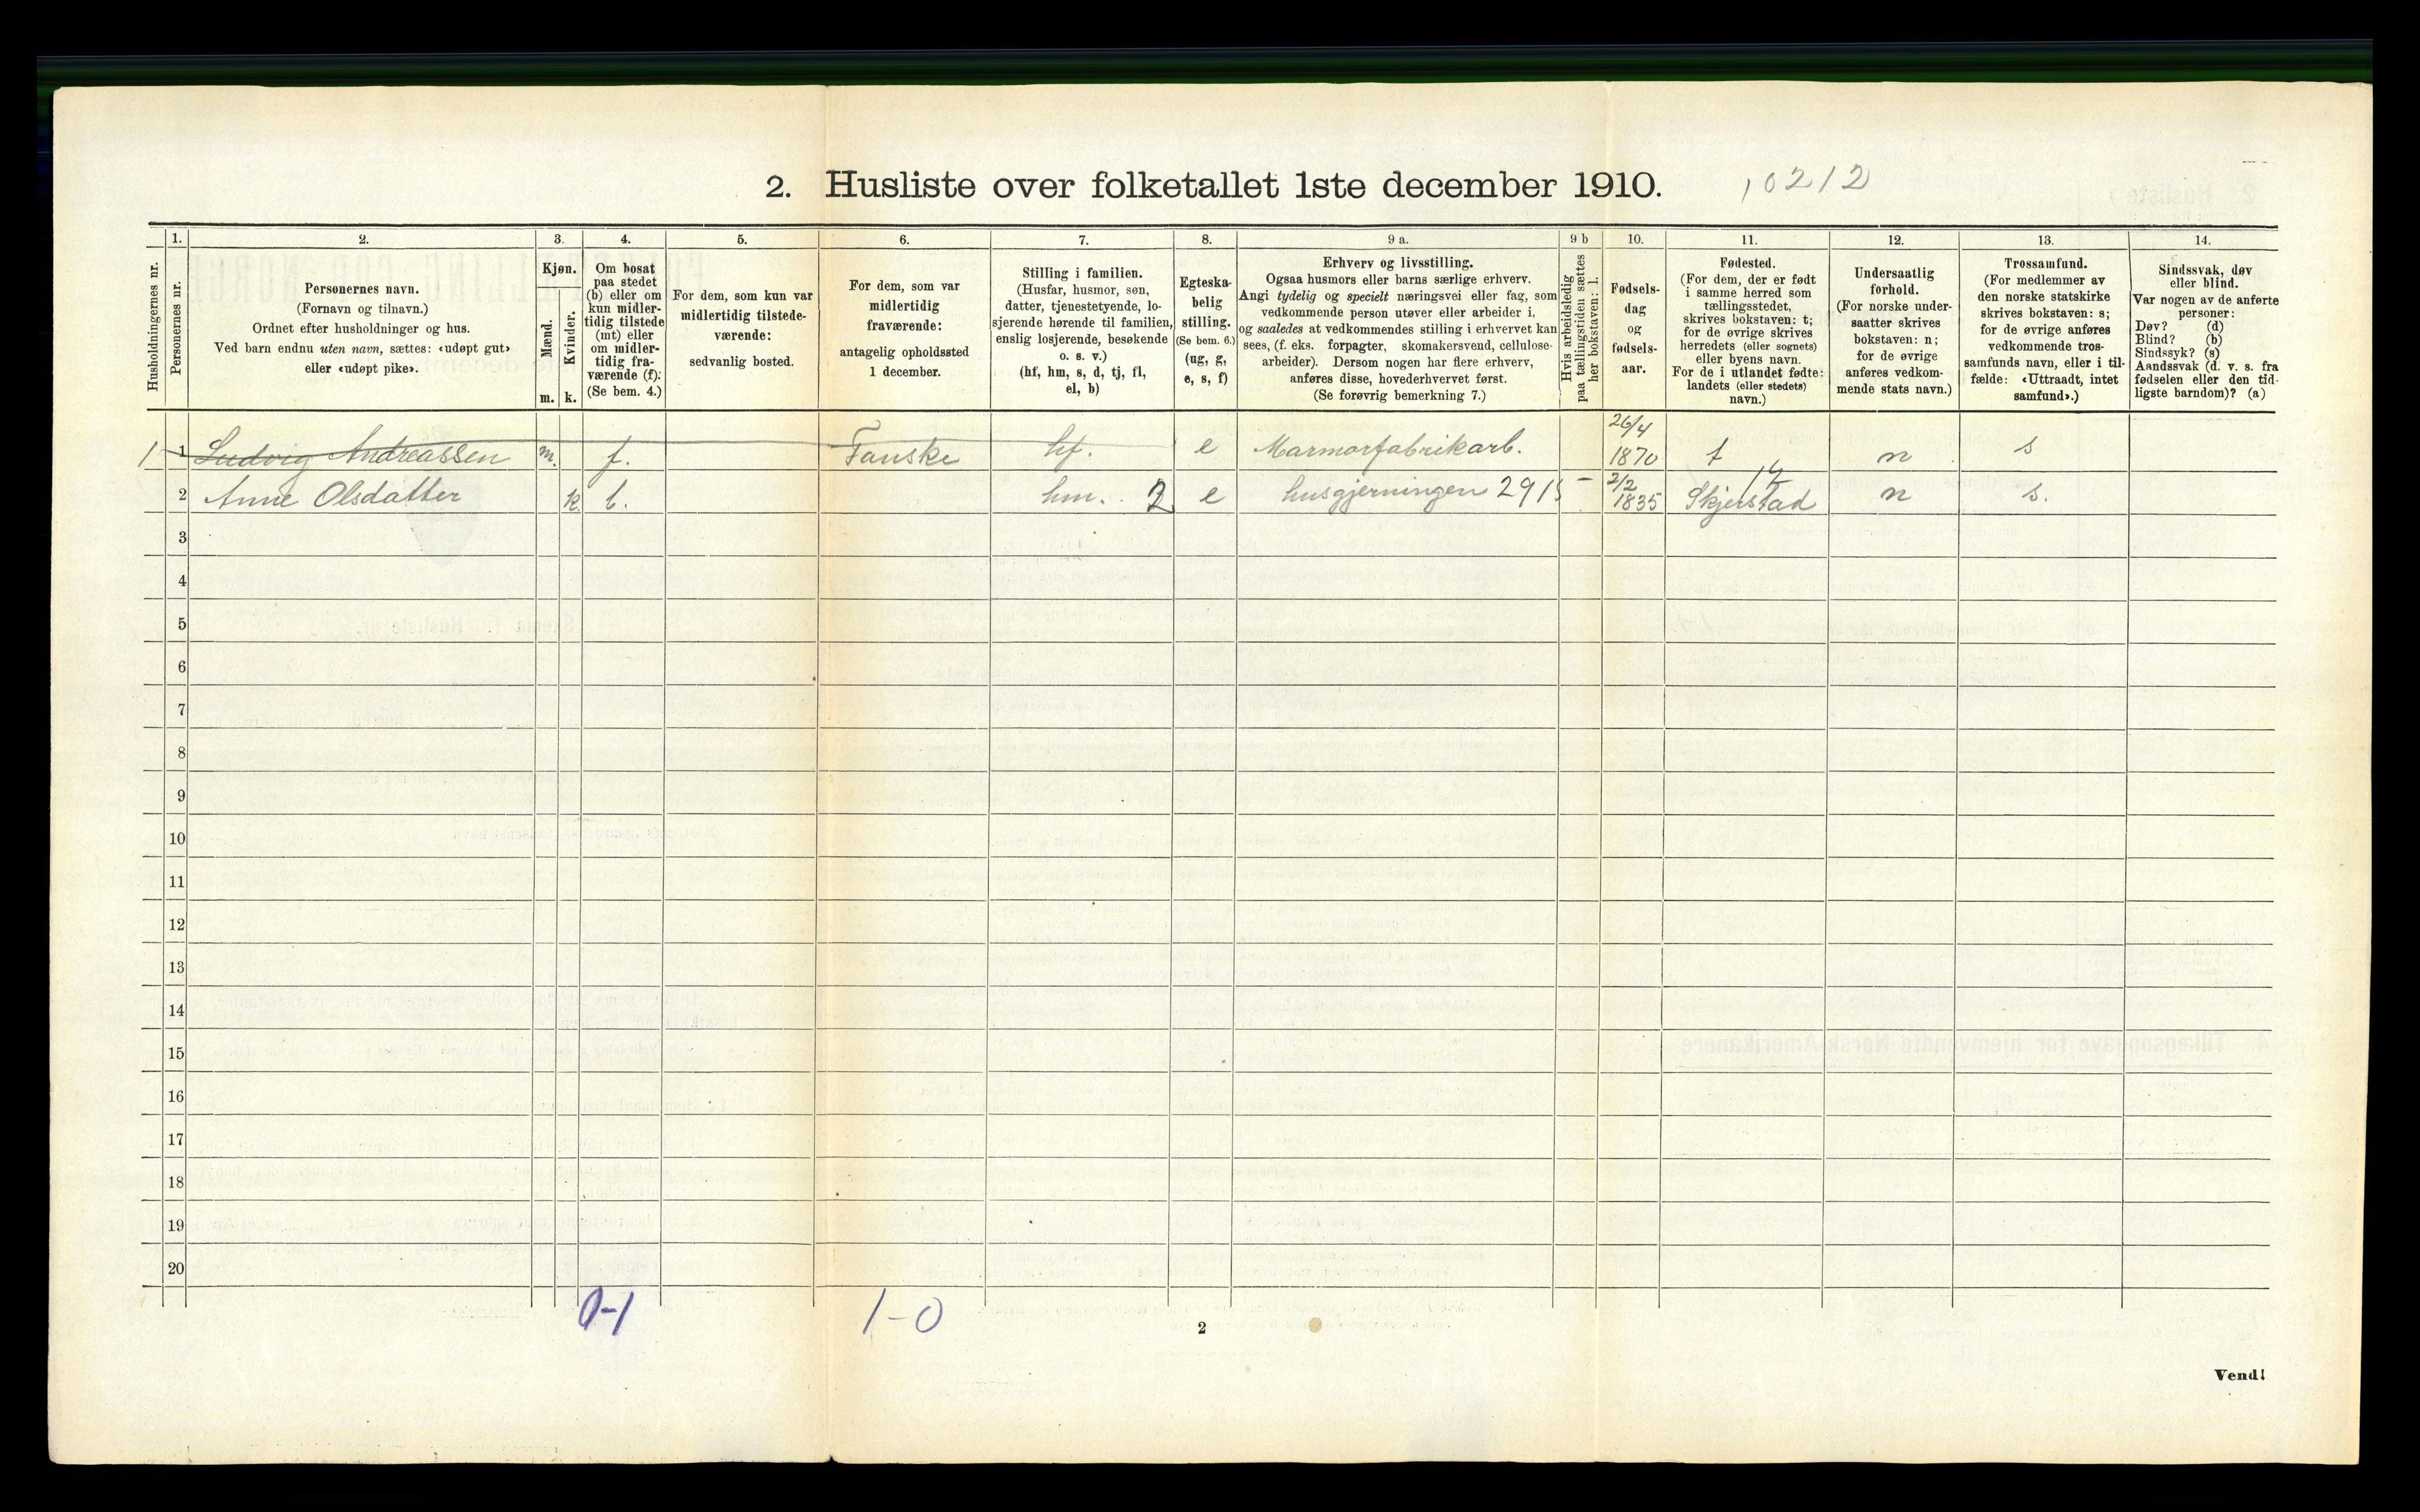 2. Husliste over folketallet 1ste december 1910. 10212
Husholdningernes nr.
1.
Personernes nr.
2.
Personernes navn.
(Fornavn og tilnavn.)
Ordnet efter husholdninger og hus.
Ved barn endnu uten navn, sættes: «udøpt gut»
eller «udøpt pike».
3.
Kjøn.
Mænd.
Kvinder.
m. k.
4.
Om bosat
paa stedet
(b) eller om
kun midler-
tidig tilstede
(mt) eller
om midler-
tidig fra-
værende (f):
(Se bem. 4.)
5.
For dem, som kun var
midlertidig tilstede-
værende:
sedvanlig bosted.
6.
For dem, som var
midlertidig
fraværende:
antagelig opholdssted
1 december.
7.
Stilling i familien.
(Husfar, husmor, søn,
datter, tjenestetyende, lo-
sjerende hørende til familien,
enslig losjerende, besøkende
o. s. v.)
(hf, hm, s, d, tj, fl,
el, b)
8.
Egteska-
belig
stilling.
(Se bem. 6.)
(ug, g,
e, s, f)
9 a.
Erhverv og livsstilling.
Ogsaa husmors eller barns særlige erhverv.
Angi tydelig og specielt næringsvei eller fag, som
vedkommende person utøver eller arbeider i,
og saaledes at vedkommendes stilling i erhvervet kan
sees, (f. eks. forpagter, skomakersvend, cellulose-
arbeider). Dersom nogen har flere erhverv,
anføres disse, hovederhvervet først.
(Se forøvrig bemerkning 7.)
9 b
Hvis arbeidsledig
paa tællingstiden sættes
her bokstaven: l.
10.
Fødsels-
dag
og
fødsels-
aar.
11.
Fødested.
(For dem, der er født
i samme herred som
tællingsstedet,
skrives bokstaven: t;
for de øvrige skrives
herredets (eller sognets)
eller byens navn.
For de i utlandet fødte:
landets (eller stedets)
navn.)
12.
Undersaatlig
forhold.
(For norske under-
saatter skrives
bokstaven: n;
for de øvrige
anføres vedkom-
mende stats navn.)
13.
Trossamfund.
(For medlemmer av
den norske statskirke
skrives bokstaven: s;
for de øvrige anføres
vedkommende tros-
samfunds navn, eller i til-
fælde: «Uttraadt, intet
samfund».)
14.
Sindssvak, døv
eller blind.
Var nogen av de anførte
personer:
Døv? (d)
Blind? (b)
Sindssyk? (s)
Aandssvak (d. v. s. fra
fødselen eller den tid-
ligste barndom)? (a)
1 1 Ludvig Andreassen m. f. Fauske hf. e Marmorfabrikarb. 26/4 1870 t n s
2 Anne Olsdatter k. b. hm. 2 e husgjerningen 2915 - 2/2 1835 Skjerstad n s.
3
4
5
6
7
8
9
10
11
12
13
14
15
16
17
18
19
20
0-1 1-0
2
Vend!